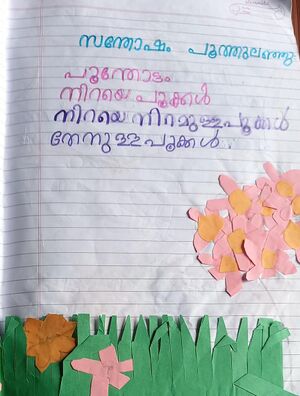 സന്തോഷം പൂത്തുലഞ്ഞു
പൂന്തോട്ടം
നിറയെ പൂക്കൾ
നിറയെ നിറമുള്ളപൂക്കൾ
തേനുള്ളപൂക്കൾ.